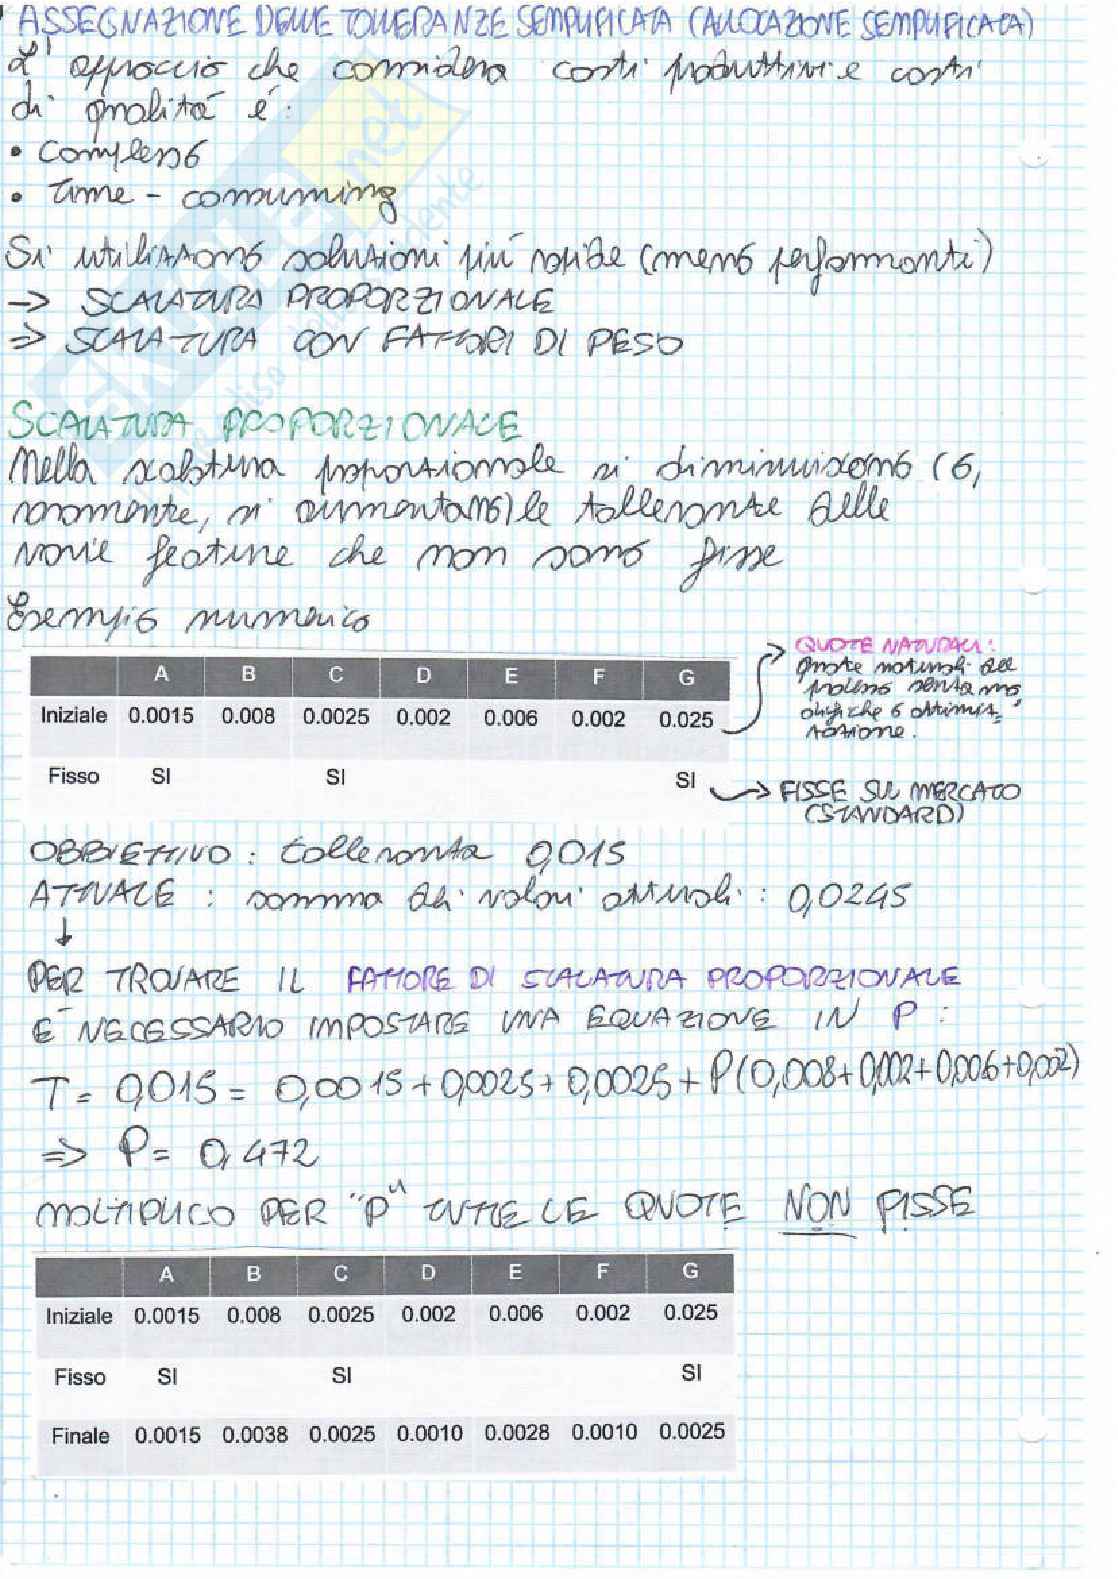 ASSEGNAZIONE DELLE TOLLERANZE SEMPLIFICATA (ALLOCAZIONE SEMPLIFICATA)
L'approccio che considera costi produttivi e costi
di qualità è:
• Complesso
• Time-consuming
Si utilizzano soluzioni più rapide (meno performanti)
-> SCALATURA PROPORZIONALE
=> SCALATURA CON FATTORI DI PESO
SCALATURA PROPORZIONALE
Nella scalatura proporzionale si diminuiscono (o,
raramente, si aumentano) le tolleranze delle
varie feature che non sono fisse
Esempio numerico
A B C D E F G
Iniziale 0.0015 0.008 0.0025 0.002 0.006 0.002 0.025
Fisso SI SI SI
QUOTE NATURALI:
quote naturali del
processo senza mo
difiche o ottimiz
zazione.
-> FISSE SUL MERCATO
(STANDARD)
OBBIETTIVO: tolleranza 0,015
ATTUALE: somma dei valori attuali: 0,0245
↓
PER TROVARE IL FATTORE DI SCALATURA PROPORZIONALE
È NECESSARIO IMPOSTARE UNA EQUAZIONE IN P:
T = 0,015 = 0,0015 + 0,0025 + 0,0025 + P(0,008+0,002+0,006+0,002)
=> P = 0,472
MOLTIPLICO PER "P" TUTTE LE QUOTE NON FISSE
A B C D E F G
Iniziale 0.0015 0.008 0.0025 0.002 0.006 0.002 0.025
Fisso SI SI SI
Finale 0.0015 0.0038 0.0025 0.0010 0.0028 0.0010 0.0025